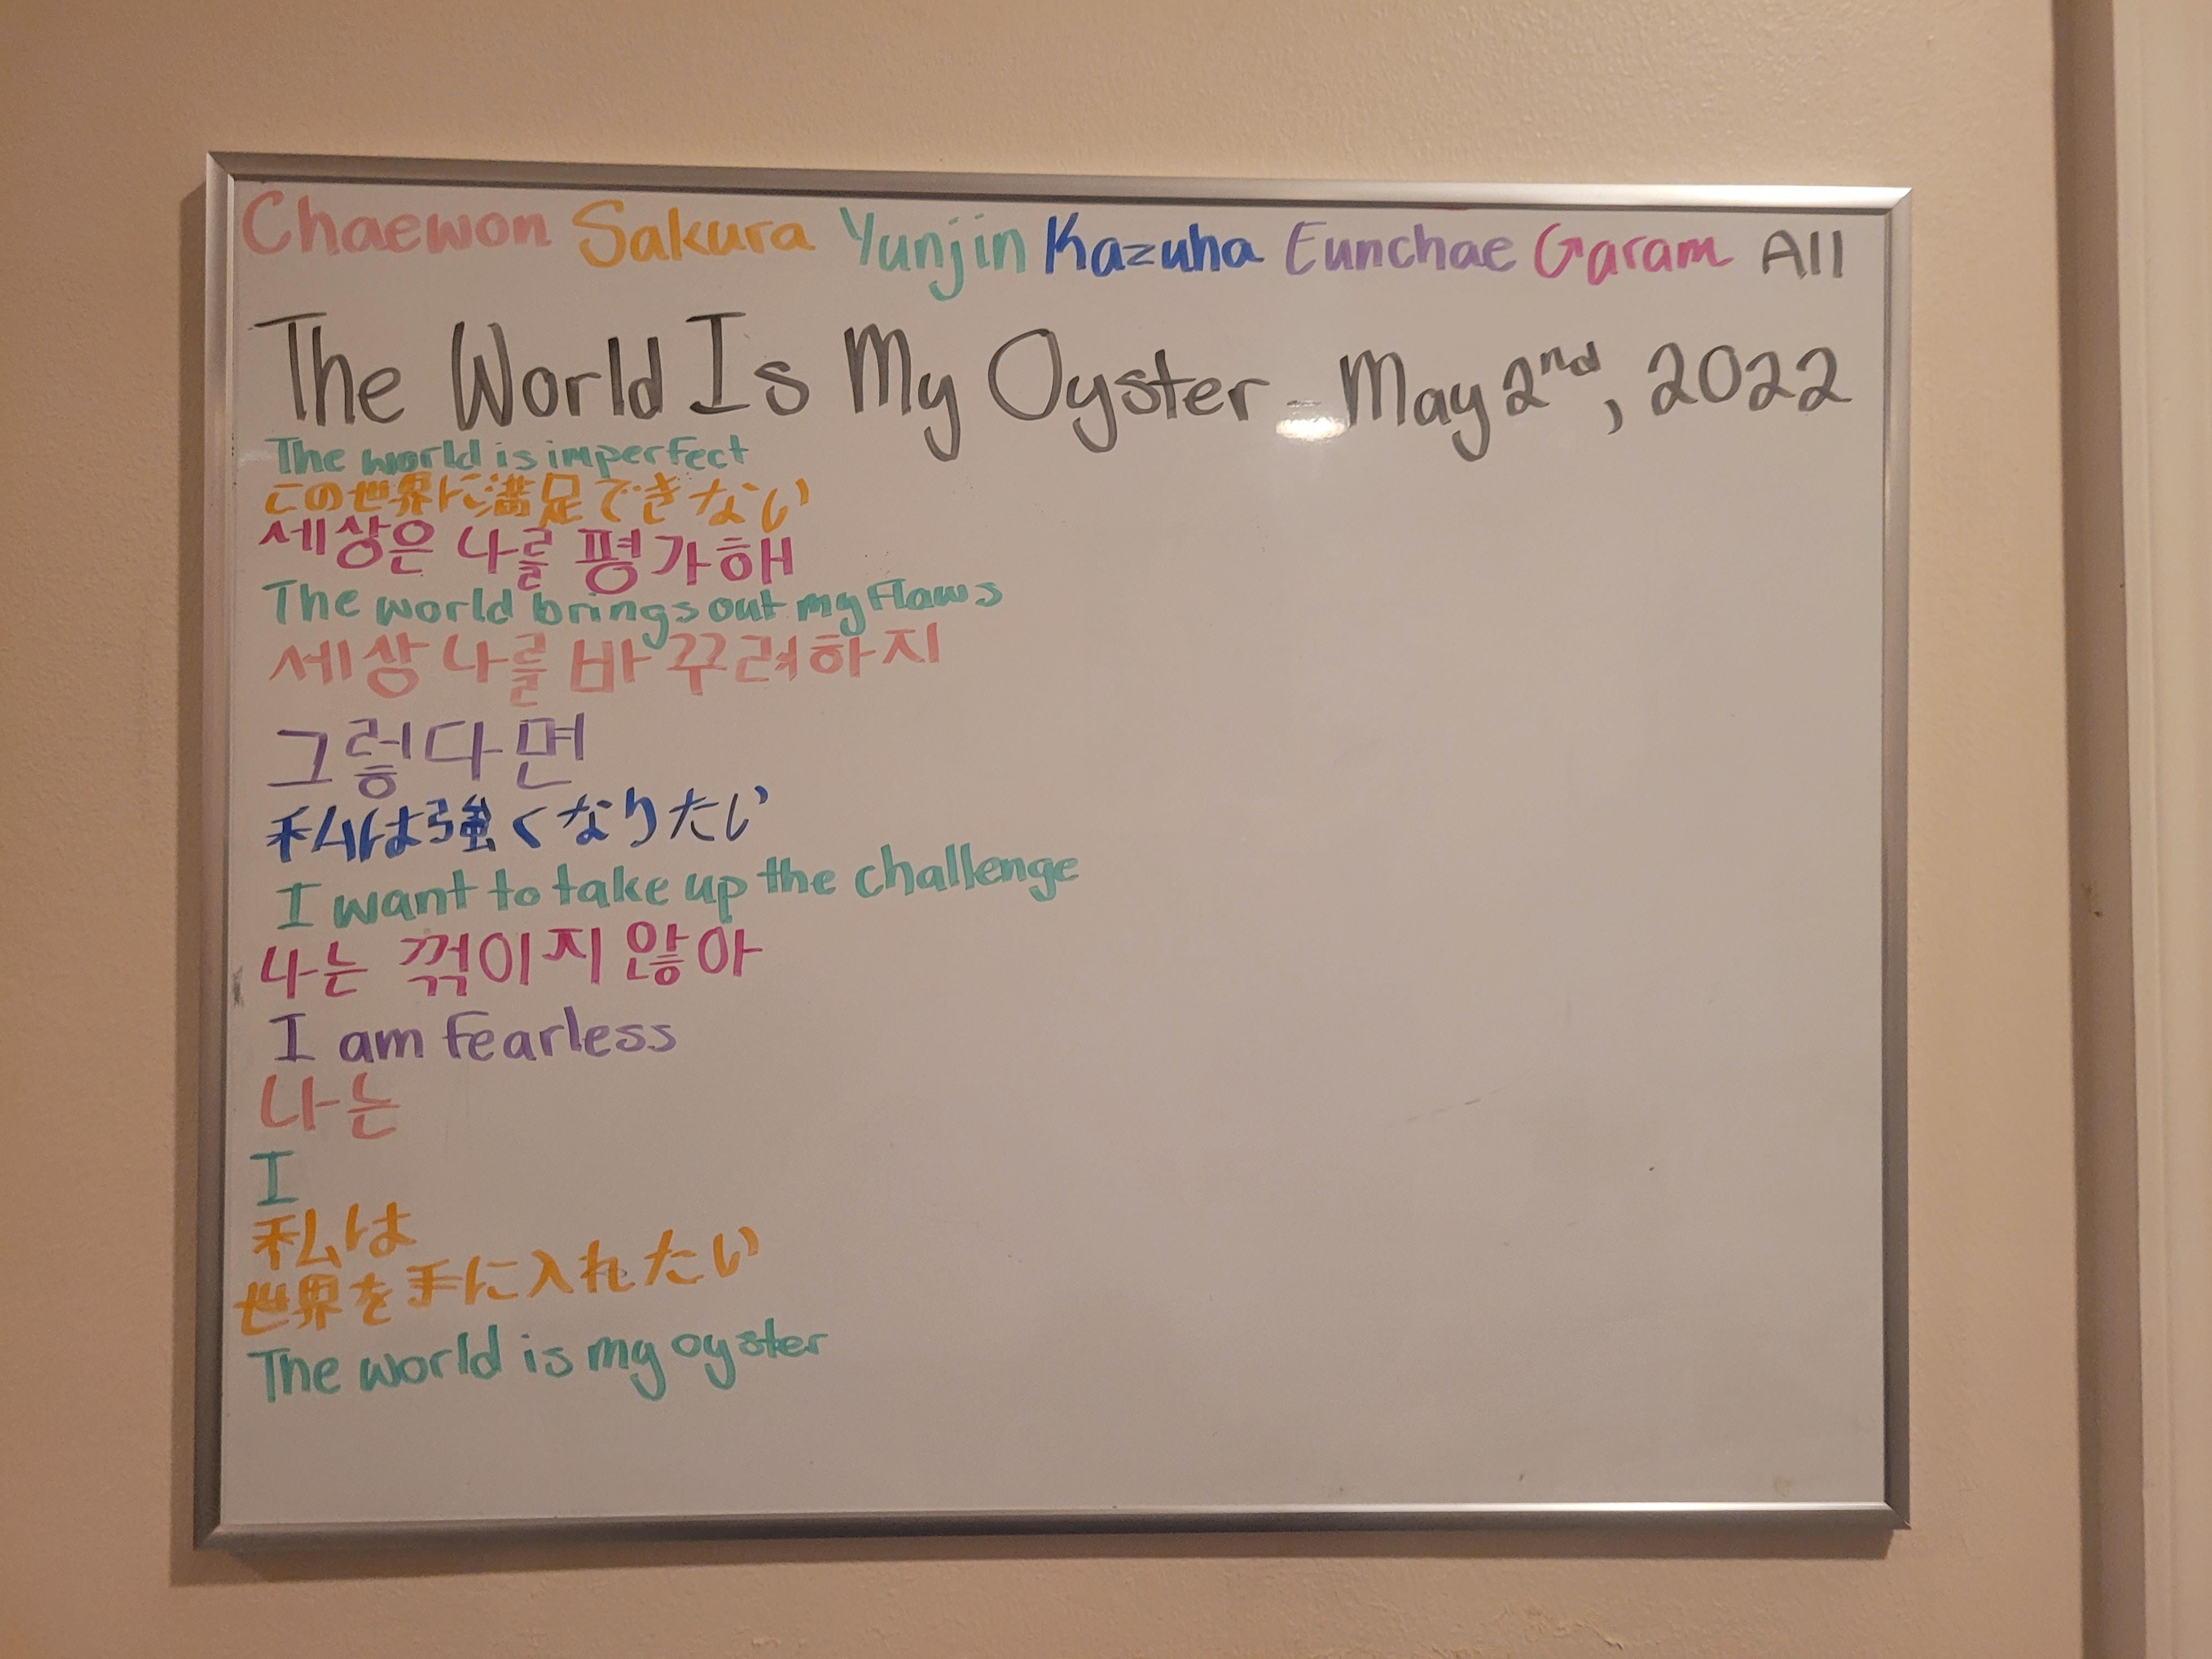 Chaewon Sakura Yunjin Kazuha Eunchae Garam All
The World Is My Oyster - May 2nd, 2022
The world is imperfect
この世界に満足できない
세상은 나를 평가해
The world brings out my flaws
세상 나를 바꾸려하지
그렇다면
私は強くなりたい
I want to take up the challenge
나는 꺾이지 않아
I am fearless
나는
I
私は
世界を手に入れたい
The world is my oyster